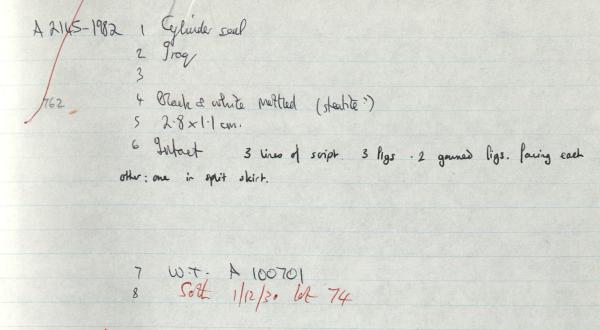 A 2145-1982 1 Cylinder seal
2 Iraq
3
762
4 Black & white mottled (steatite?)
5 2.8 x 1.1 cm.
6 Intact 3 lines of script. 3 figs. 2 gowned figs. facing each
other: one in split skirt.
7 W.T. A 100701
8 Soth 1/12/30 lot 74